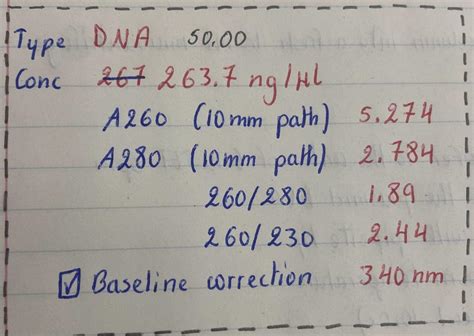 Type DNA 50.00
Conc 267 263.7 ng/µl
A260 (10mm path) 5.274
A280 (10mm path) 2.784
260/280 1.89
260/230 2.44
☑ Baseline correction 340 nm